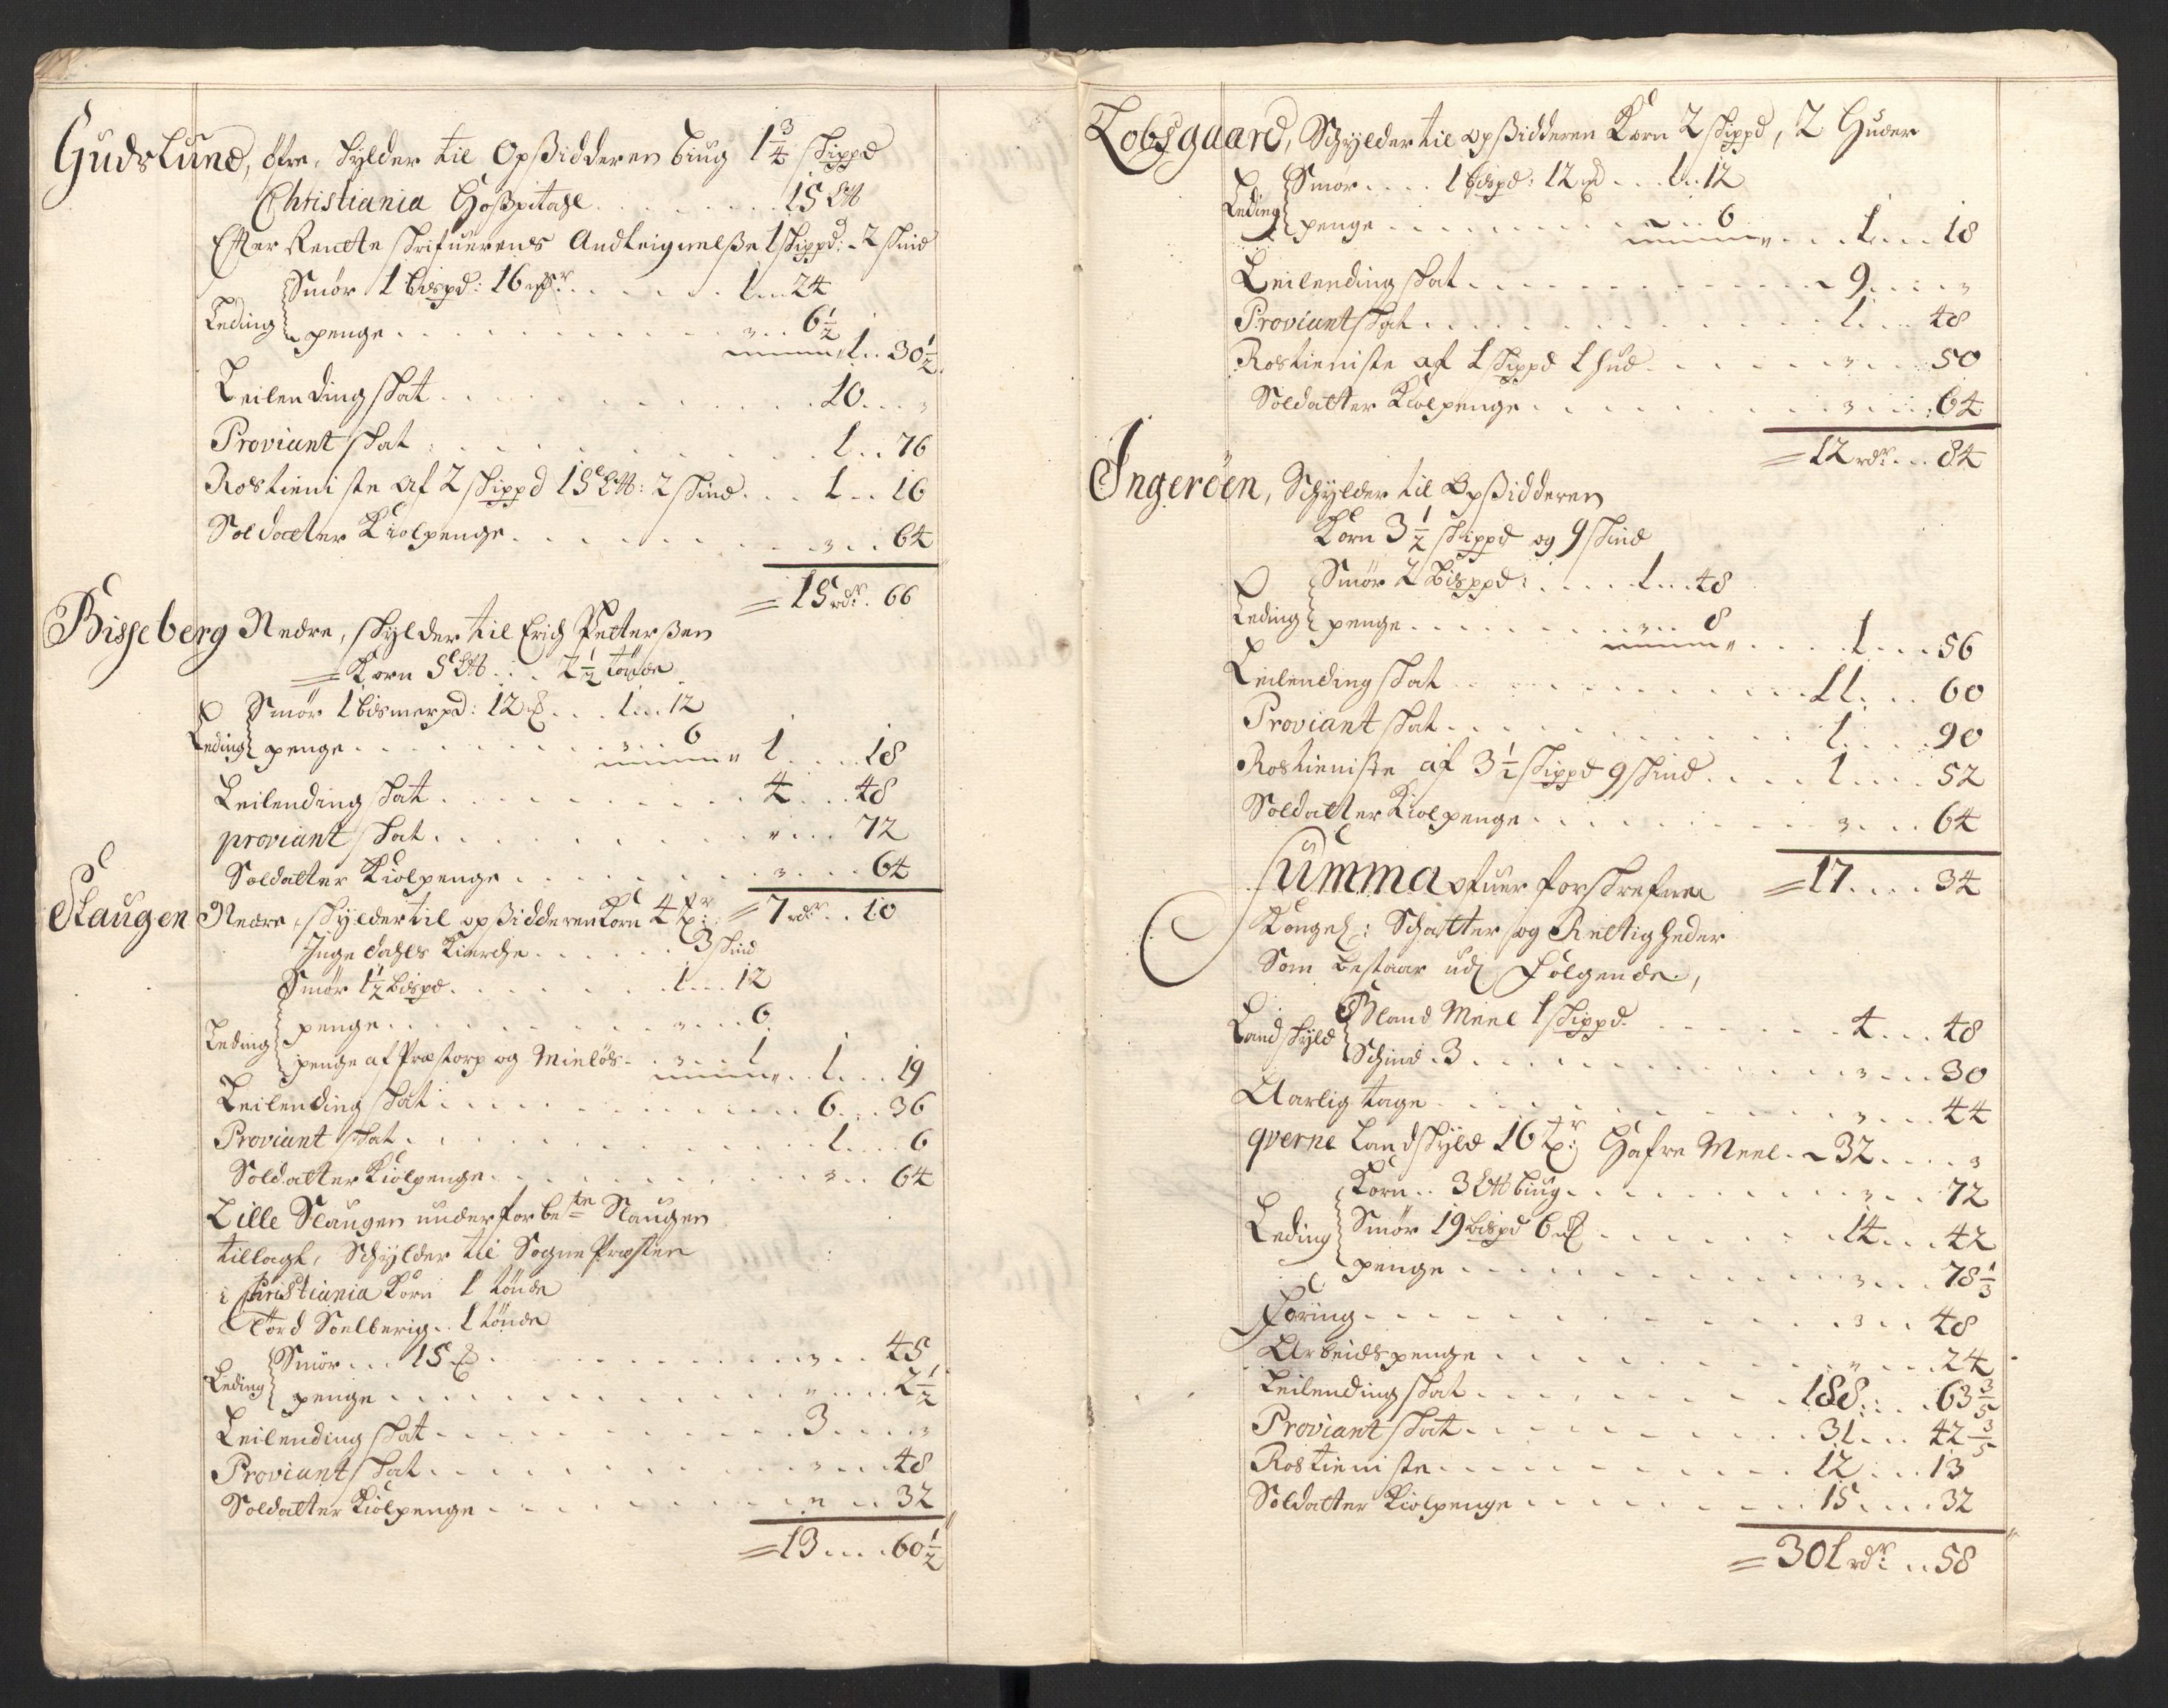 Gudslund, öfre, skylder til Opsidderen biug 1 3/4 skippd
Christiania Hospitahl . . . . . . . . 15 L℔
Efter Rentteskrifuerens Andteignelsse 1 skippd: - 2 skind
Smör 1 bispd: 16 . . . . . . 1 . . . 24
Leding penge . . . . . . . . . . . . „ . . . 6 1/2
1 . . 30 1/2
Leilending skat . . . . . . . . . . . . 10 . . . „
Proviant skat . . . . . . . . . . . . 1 . . 76
Rostieniste af 2 skippd 15 L℔: 2 skind . . . 1 . . . 16
Soldatter Kiolpenge . . . . . . . . . . „ . . . 64
= 15 rdr. 66
Bisseberg Nedre, skylder til Erich Pettersen
= Korn 5 L℔ . . . 2 1/2 tönde
Smör 1 bismerpd: 12 . . . 1 . . . 12
Leding penge . . . . . . . . . . . „ . . . 6
„ 1 . . . . 18
Leilending skat . . . . . . . . . . . 4 . . . 48
proviant skat . . . . . . . . . . . „ . . . 72
Soldatter Kiolpenge . . . . . . . . . „ . . . 64
Slaugen Nedre, skylder til opsidderen Korn 4 tr: = 7 rdr. . . 10
Inge dahls Kierche . . . . . . . 3 skind
Smör 1 1/2 bispd . . . . . . . . 1 . . . 12
Leding penge . . . . . . . . . . . „ . . . 6
penge af Prestorp og Mielös . „ . . . 1
1 . . . 19
Leilending skat . . . . . . . . . . . . 6 . . . 36
Proviant skat . . . . . . . . . . . . 1 . . . . 6
Soldatter Kiolpenge . . . . . . . . . . „ . . . 64
Lille Slaugen under forbete Slaugen
tillagt, Schylder til Sogne Presten
i Christiania Korn 1 tönde
Tord Soelberig . . 1 tönde
Smör . . . 15 . . . . . . . . . . „ . . . 45
Leding penge . . . . . . . . . . . . „ . . . . 2 1/2
Leilending skat . . . . . . . . . . . 3 . . . . „
Proviant skat . . . . . . . . . . . . „ . . . 48
Soldatter Kiolpenge . . . . . . . . . „ . . . 32
= 13 . . . . 60 1/2
Lobsgaard, Schylder til opsidderen Korn 2 skippd, 2 Huder
Smör . . . . 1 bispd: 12 . . . 1 . . 12
Leding penge . . . . . . . . . . . „ . . . 6
1 . . . . 18
Leilending skat . . . . . . . . . . . . 9 . . . . „
Proviant skat . . . . . . . . . . . . 1 . . . . 48
Rostieniste af 1 skippd 1 hud . . . . . . „ . . . 50
Soldatter Kiolpenge . . . . . . . . . . „ . . . 64
= 12 rdr. . . . 84
Ingeröen, Schylder til Opsidderen
Korn 3 1/2 skippd og 9 skind
Smör 2 bisppd: . . . . . 1 . . . 48
Leding penge . . . . . . . . . . . „ . . . 8
1 . . . 56
Leilending skat . . . . . . . . . . . 11 . . . 60
Proviant skat . . . . . . . . . . . . 1 . . . . 90
Rostieniste af 3 1/2 skippd 9 skind . . . . 1 . . . . 52
Soldatter Kiolpenge . . . . . . . . . . „ . . . 64
Summa ofuer forskrefne = 17 . . . . 34
Kongel: Schatter og Rettigheder
Som bestaar udj Folgende,
Bland Meel 1 skippd . . . . . . . 4 . . . 48
Landskyld Schind . 3 . . . . . . . . . . . „ . . . 30
Aarlig tage . . . . . . . . . . . . „ . . . 44
qverne Landskyld 16 tr: Hafre Meel . . 32 . . . . „
Korn . . 3 L℔ biug . . . . . . . . . „ . . . 72
Leding Smör 19 bispd 6 . . . . . . . . 14 . . . 42
penge . . . . . . . . . . . . „ . . . 78 1/3
Foring . . . . . . . . . . . . . . „ . . . 48
Arbeidspenge . . . . . . . . . . . „ . . . 24
Leilending skat . . . . . . . . . . 188 . . . 63 3/5
Proviant skat . . . . . . . . . . . 31 . . . 42 3/5
Rostieniste . . . . . . . . . . . 12 . . . 13
Soldatter Kiolpenge . . . . . . . . . 15 . . . . 32
= 301 rdr. . . 58